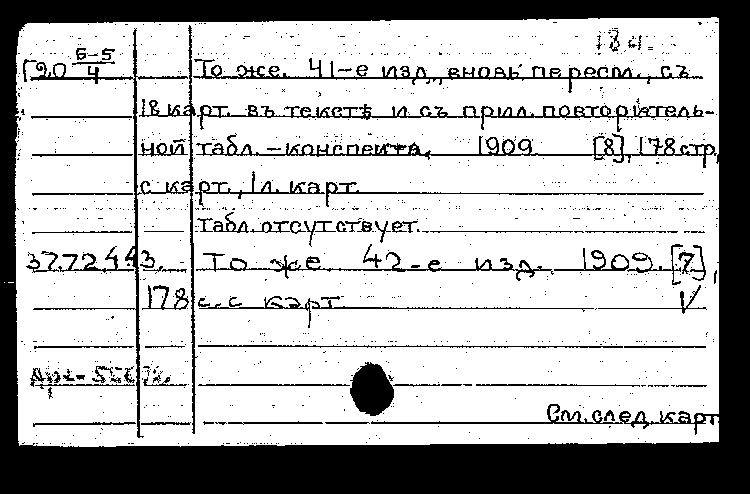 18 d.
Г20 6-5/4 То же. 41-е изд., вновь пересм., съ
18 карт. въ текстѣ и съ прил. повторитель-
ной табл.-конспекта. 1909 [8], 178 стр.
с карт., 1 л. карт.
Табл. отсутствует.
37.72.443. То же 42-е изд. 1909. [7],
178 с. с карт
V
См. след. карт